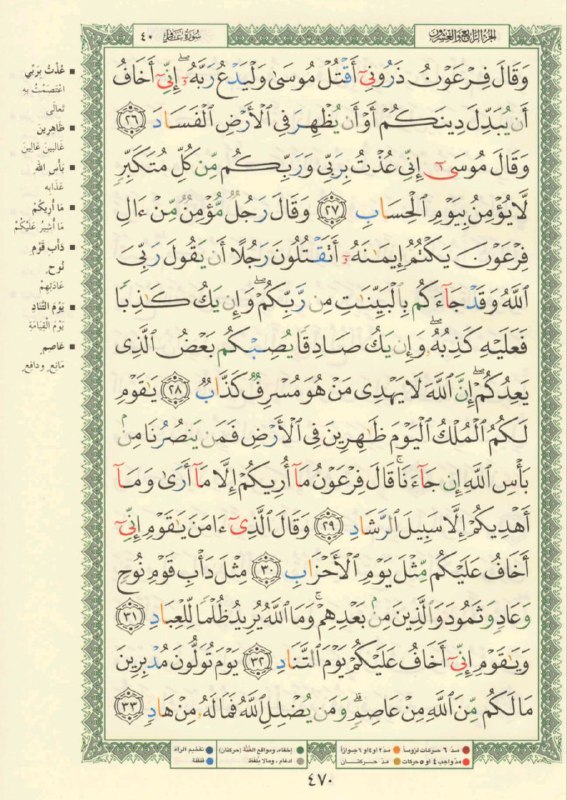 الجزء الرابع والعشرون
سورة غافر ٤٠
وَقَالَ فِرْعَوْنُ ذَرُونِىٓ أَقْتُلْ مُوسَىٰ وَلْيَدْعُ رَبَّهُۥٓ ۖ إِنِّىٓ أَخَافُ
أَن يُبَدِّلَ دِينَكُمْ أَوْ أَن يُظْهِرَ فِى ٱلْأَرْضِ ٱلْفَسَادَ ﴿٢٦﴾
وَقَالَ مُوسَىٰٓ إِنِّى عُذْتُ بِرَبِّى وَرَبِّكُم مِّن كُلِّ مُتَكَبِّرٍ
لَّا يُؤْمِنُ بِيَوْمِ ٱلْحِسَابِ ﴿٢٧﴾ وَقَالَ رَجُلٌ مُّؤْمِنٌ مِّنْ ءَالِ
فِرْعَوْنَ يَكْتُمُ إِيمَٰنَهُۥٓ أَتَقْتُلُونَ رَجُلًا أَن يَقُولَ رَبِّىَ
ٱللَّهُ وَقَدْ جَآءَكُم بِٱلْبَيِّنَٰتِ مِن رَّبِّكُمْ ۖ وَإِن يَكُ كَٰذِبًا
فَعَلَيْهِ كَذِبُهُۥ ۖ وَإِن يَكُ صَادِقًا يُصِبْكُم بَعْضُ ٱلَّذِى
يَعِدُكُمْ ۖ إِنَّ ٱللَّهَ لَا يَهْدِى مَنْ هُوَ مُسْرِفٌ كَذَّابٌ ﴿٢٨﴾ يَٰقَوْمِ
لَكُمُ ٱلْمُلْكُ ٱلْيَوْمَ ظَٰهِرِينَ فِى ٱلْأَرْضِ فَمَن يَنصُرُنَا مِنۢ
بَأْسِ ٱللَّهِ إِن جَآءَنَا ۚ قَالَ فِرْعَوْنُ مَآ أُرِيكُمْ إِلَّا مَآ أَرَىٰ وَمَآ
أَهْدِيكُمْ إِلَّا سَبِيلَ ٱلرَّشَادِ ﴿٢٩﴾ وَقَالَ ٱلَّذِىٓ ءَامَنَ يَٰقَوْمِ إِنِّىٓ
أَخَافُ عَلَيْكُم مِّثْلَ يَوْمِ ٱلْأَحْزَابِ ﴿٣٠﴾ مِثْلَ دَأْبِ قَوْمِ نُوحٍ
وَعَادٍ وَثَمُودَ وَٱلَّذِينَ مِنۢ بَعْدِهِمْ ۚ وَمَا ٱللَّهُ يُرِيدُ ظُلْمًا لِّلْعِبَادِ ﴿٣١﴾
وَيَٰقَوْمِ إِنِّىٓ أَخَافُ عَلَيْكُمْ يَوْمَ ٱلتَّنَادِ ﴿٣٢﴾ يَوْمَ تُوَلُّونَ مُدْبِرِينَ
مَا لَكُم مِّنَ ٱللَّهِ مِنْ عَاصِمٍ ۗ وَمَن يُضْلِلِ ٱللَّهُ فَمَا لَهُۥ مِنْ هَادٍ ﴿٣٣﴾
■ عُذْتُ بِرَبِّي
اعْتَصَمْتُ بِهِ
تَعالَى
■ ظَاهِرِين
غَالِبينَ عَالِينَ
■ بَأسِ الله
عَذَابِه
■ مَا أُرِيكُمْ
مَا أُشِيرُ عَلَيْكُمْ
■ دَأبِ قَوْمِ
نُوح
عَادَتِهِمْ
■ يَوْمَ التَّنَادِ
يَوْمَ الْقِيَامَةِ
■ عاصِم
مَانِعٍ وَدافِعٍ
مدّ ٦ حركات لزوماً
مدّ٢ او٤او ٦جوازاً
إخفاء، ومواقع الغُنَّة (حركتان)
تفخيم الراء
مدّ واجب ٤ او ٥ حركات
مدّ حركتان
ادغام، ومالا يلفظ
قلقلة
٤٧٠